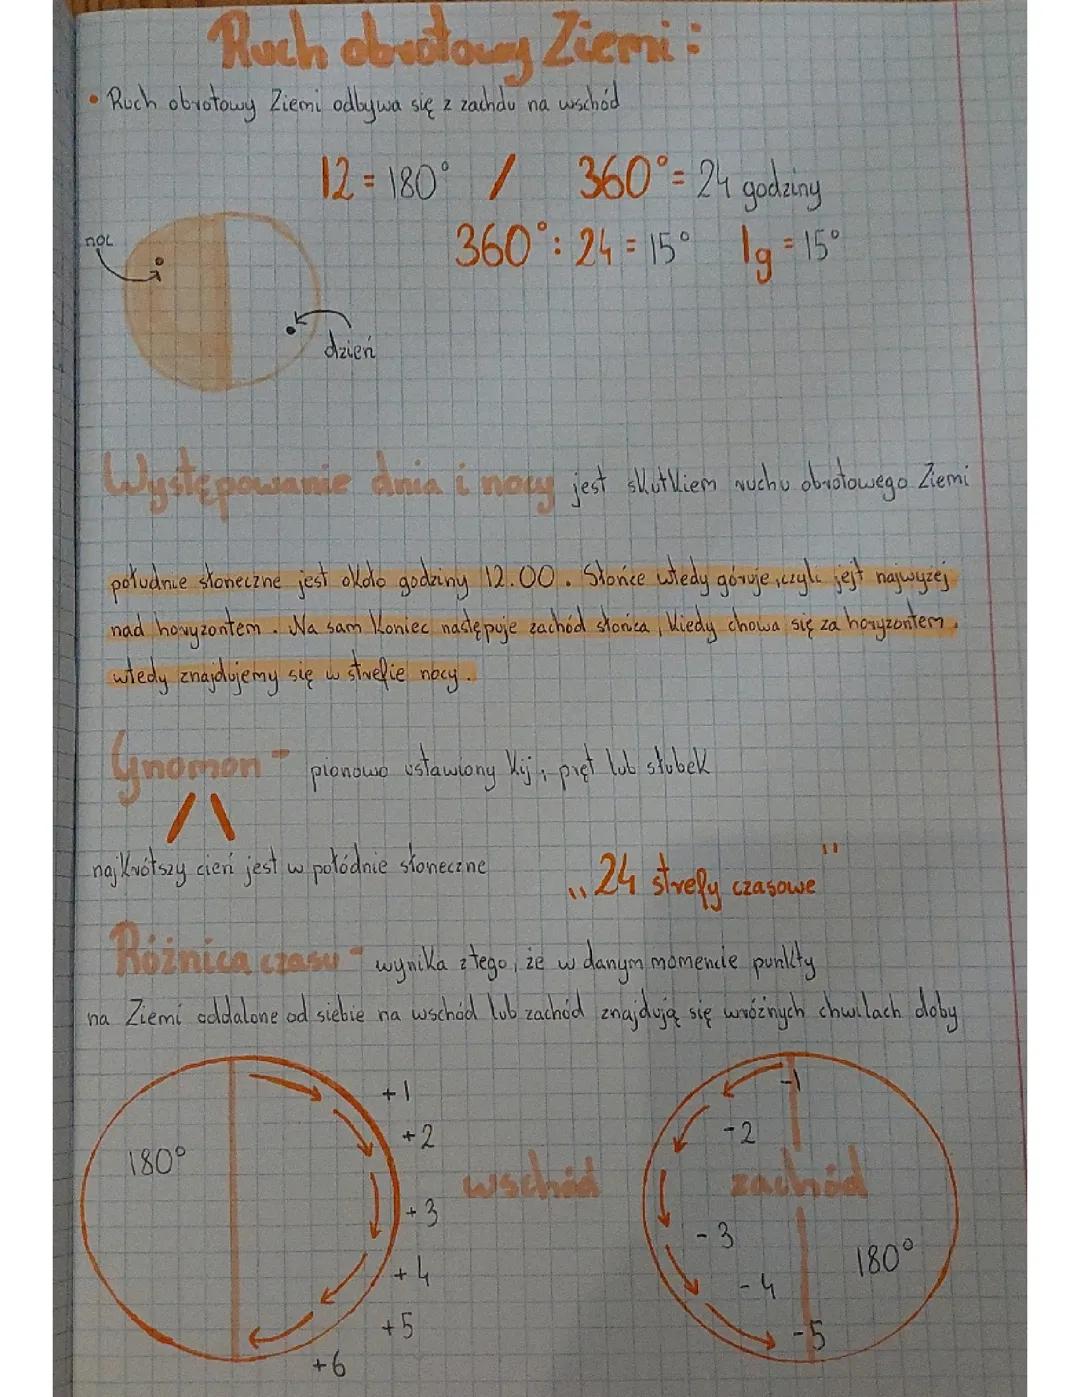 Ruch obrotowy Ziemi:
• Ruch obrotowy Ziemi odbywa się z zachdu na wschód
12 = 180° / 360° = 24 godziny
360° : 24 = 15° 1g = 15°
noc
dzień
Występowanie dnia i nocy jest skutkiem ruchu obrotowego Ziemi
południe słoneczne jest około godziny 12.00. Słońce wtedy góruje, czyli jejt najwyżej
nad horyzontem. Na sam koniec następuje zachód słońca, kiedy chowa się za horyzontem,
wtedy znajdujemy się w strefie nocy.
Gnomon - pionowo ustawiony kij, pręt lub słubek
najkrótszy cień jest w połódnie słoneczne
„24 strefy czasowe"
Różnica czasu - wynika z tego, że w danym momencie punkty
na Ziemi oddalone od siebie na wschód lub zachód znajdują się w różnych chwilach doby
180°
+1
+2
+3
+4
+5
+6
wschód
-1
-2
zachód
-3
180°
-4
-5